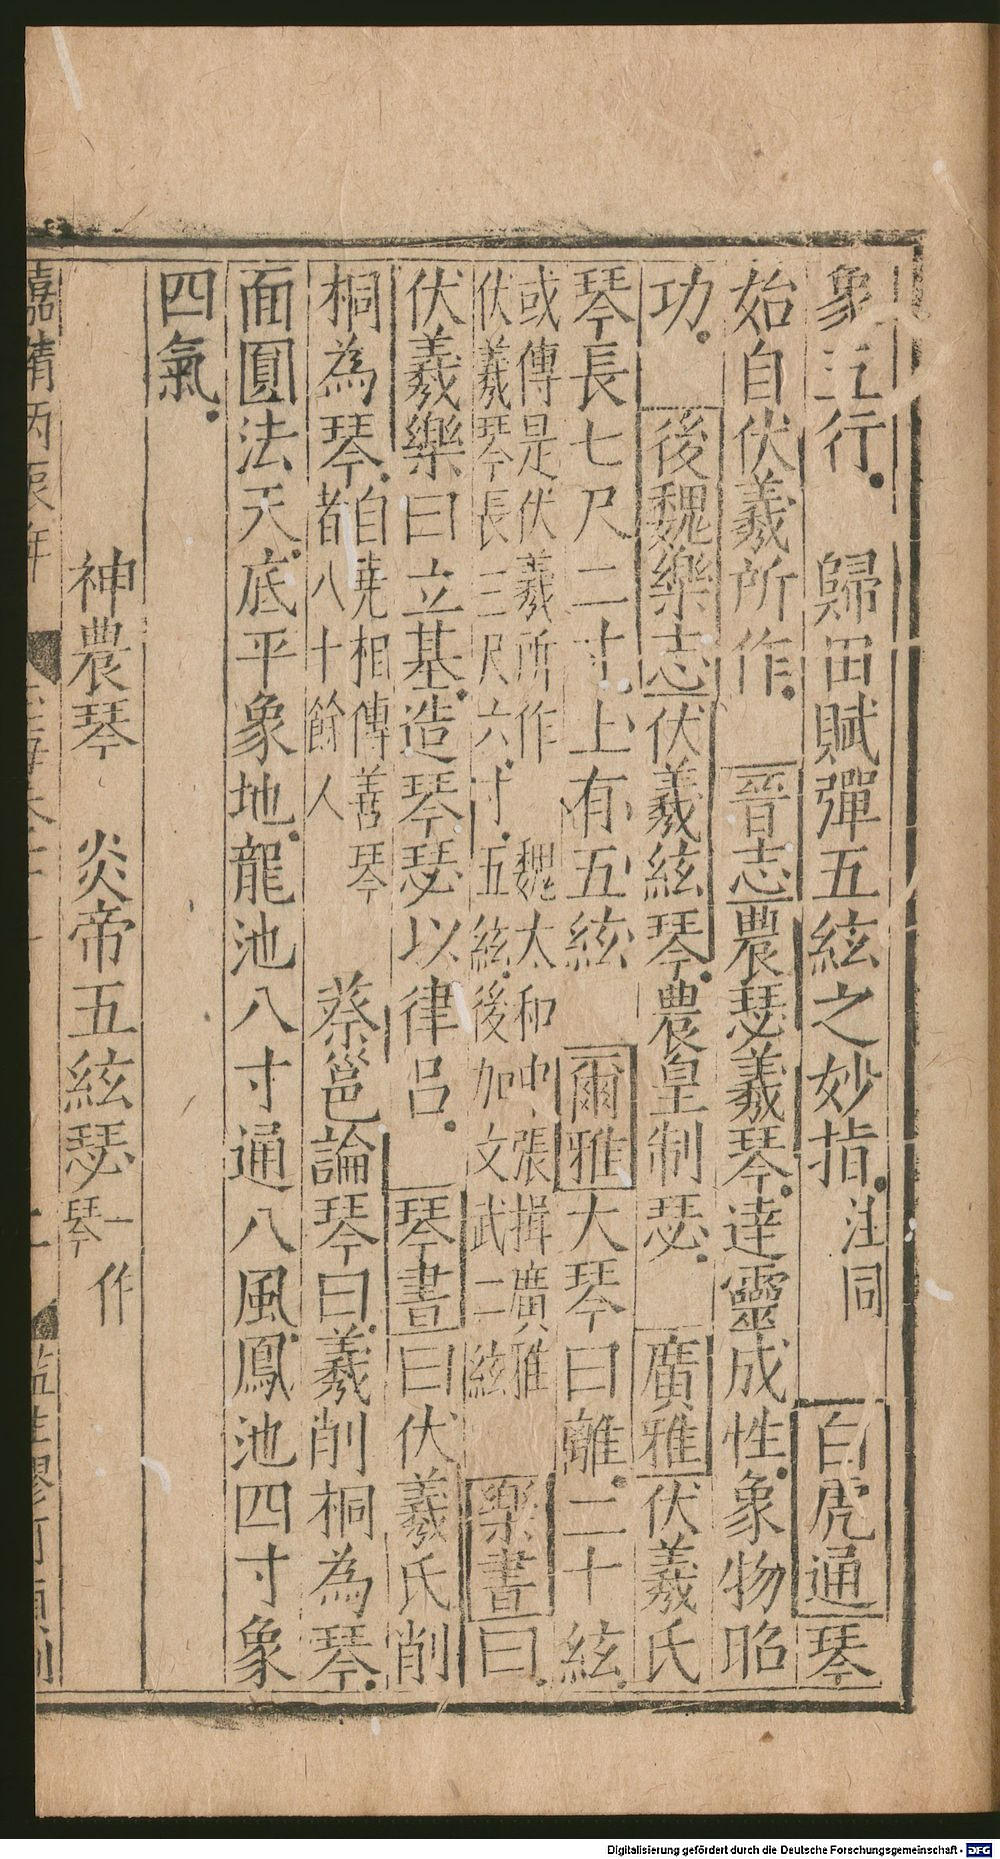 象五行。歸田賦彈五絃之妙指。注同白虎通琴
始自伏羲所作。晉志農瑟羲琴。達靈成性。象物昭
功。後魏樂志伏羲絃琴。農皇制瑟。廣雅伏羲氏
琴長七尺二寸。上有五絃爾雅大琴曰離。二十絃。
或傳是伏羲所作魏太和中、張揖廣雅
伏羲琴長三尺六寸。五絃。後加文武二絃
樂書曰。
伏羲樂曰立基。造琴瑟以律呂。琴書曰伏羲氏削
桐為琴。
自堯相傳善琴
者八十餘人
蔡邕論琴曰。羲削桐為琴。
面圓法天。底平象地。龍池八寸通八風。鳳池四寸象
四氣。
神農琴炎帝五絃瑟
一作
琴
嘉靖丙辰年
監生廖
Digitalisierung gefördert durch die Deutsche Forschungsgemeinschaft - DFG